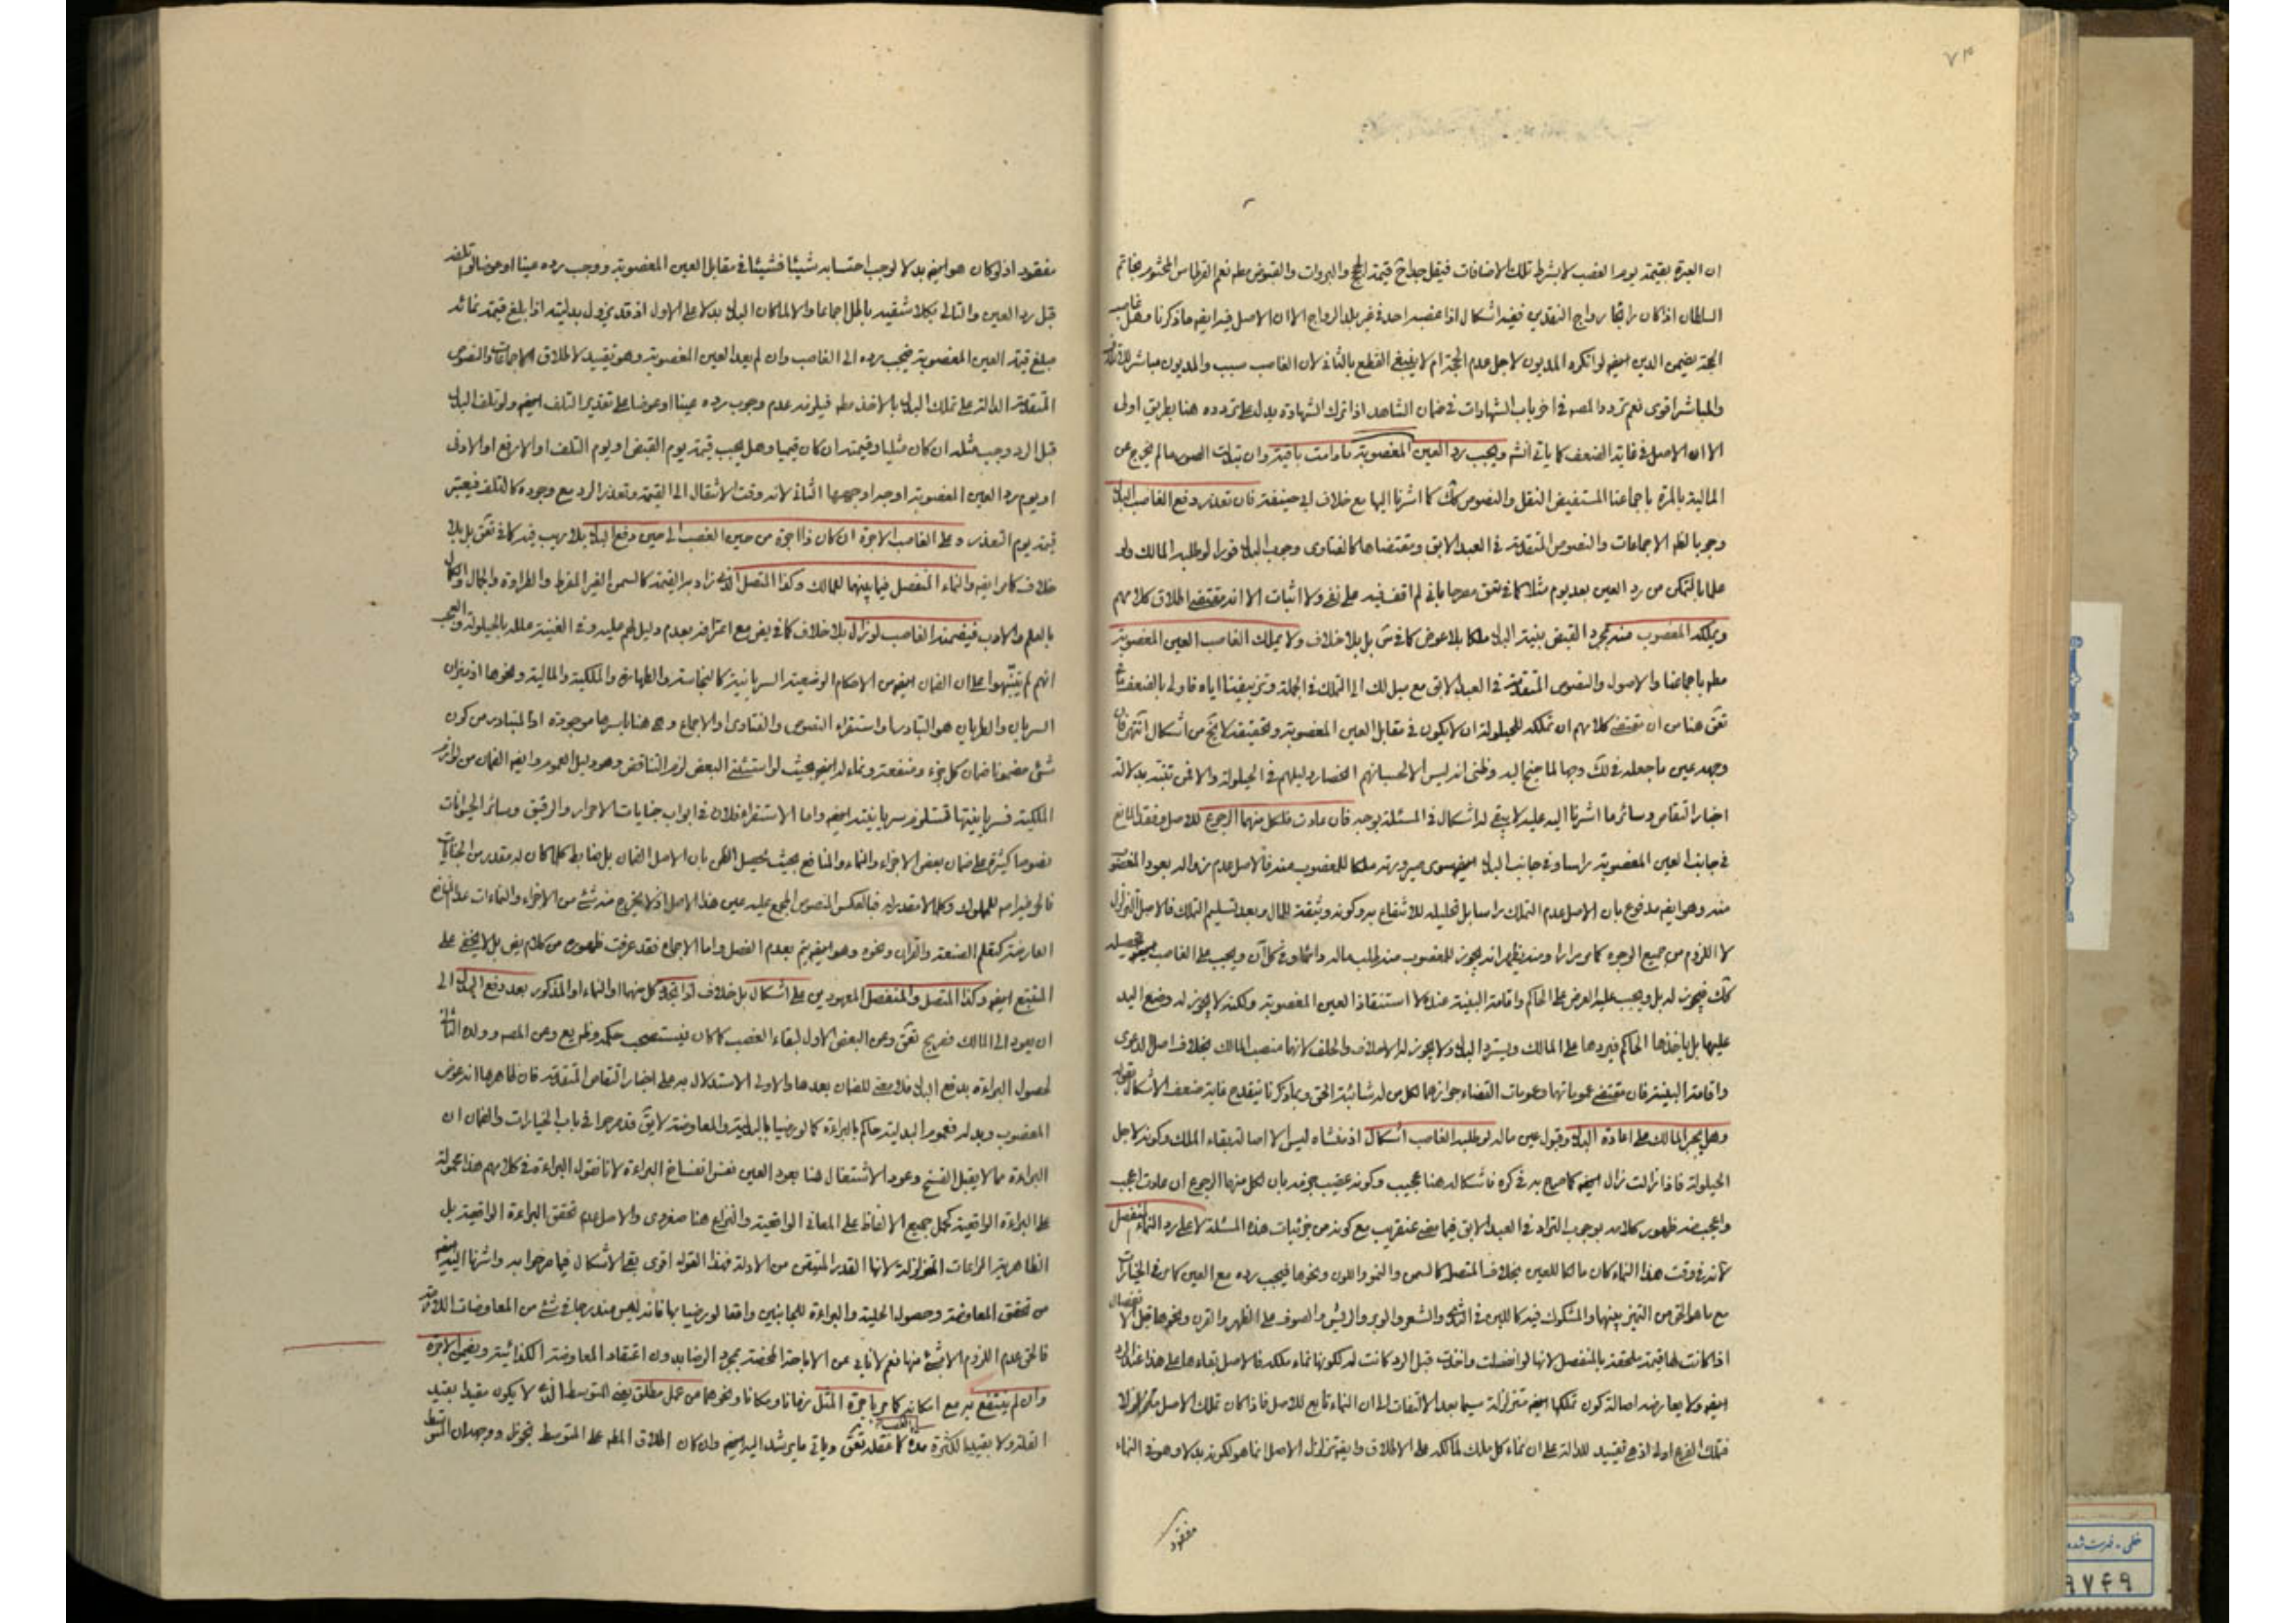 ٧٣
ان العبرة بقيمته يوم الغصب لا بشرط تلك الاضافات فيقل جدا قيمة والبروات والقبوض نعم القرطاس المختوم بخاتم
السلطان اذا كان رائجا رواج النقدين ففيه اشكال اذا غصبه احد في غير بلد الرواج الا ان الاصل فيه ايضا ما ذكرنا وهل غاصب
الحجة يضمن الدين ايضا لو انكره المديون لاجل عدم الحجة ام لا ينبغي القطع بالثاني لان الغاصب سبب والمديون مباشر
والمباشر اقوى نعم تردد المصه في اخر باب الشهادات في ضمان الشاهد اذا ترك الشهادة يدل على تردده هنا بطريق اولى
الا ان الاصل في غاية الضعف كما ياتي انشه ويجب رد العين المغصوبة مادامت باقية وان تبدلت الصور ما لم يخرج عن
المالية بالمرة باجماعنا المستفيض النقل والنصوص كك كما اشرنا اليها مع خلاف ابي حنيفة فان تعذر دفع الغاصب البدل
وجوبا الاجماعات والنصوص المتقدمة في العبد الابق ومقتضاها كالفتاوى وجوب البدل فورا لو طلبه المالك ولو
علما بالتمكن من رد العين بعد يوم مثلا كما في تعق مصرحا باني لم اقف فيه على نفي ولا اثبات الا انه مقتضى اطلاق كلامهم
ويملكه المغصوب منه بمجرد القبض بنية البدل ملكا بلا عوض كما في بل بلا خلاف ولا يملك الغاصب العين المغصوبة
باجماعنا والاصول والنصوص المتقدمة في العبد الابق مع ميل لك الى التملك في الجملة وتزييفنا اياه فاولى بالضعف
تعق هنا من ان مقتضى كلامهم ان تملكه للحيلولة ان لا يكون في مقابل العين المغصوبة وتحقيقه لا يخ من اشكال انتهى فان
وجهه عين ما جعله في لك وجها لما جنح اليه وظني انه ليس الا لحسبانهم انحصار دليلهم في الحيلولة والا فمن تنبه بدلالة
اخبار التقاص وسائر ما اشرنا اليه عليه لا يبقى له اشكال في المسئلة بوجه فان عادت فلكل منهما الرجوع للاصل وفقد المانع
في جانب العين المغصوبة راسا وفي جانب البدل ايضا سوى صيرورته ملكا للمغصوب منه فالاصل عدم زواله بعود المغصوب
منه وهو ايضا مدفوع بان الاصل عدم التملك راسا بل تحليله للانتفاع به وكونه وثيقة المال وبعد تسليم التملك فالاصل التزلزل
لا اللزوم من جميع الوجوه كما مر مرارا ومنه يظهر انه يجوز للمغصوب منه طلب ماله دائما وفي كل آن ويجب على الغاصب تحصيله
كك فيجوز له بل ويجب عليه العرض على الحاكم واقامة البينة عنده لاستنقاذ العين المغصوبة ولكنه لا يجوز له وضع اليد
عليها بل ياخذها الحاكم فيردها على المالك ويسترد البدل ولا يجوز له الاحلاف والحلف لانهما منصب المالك بخلاف اصل الدعوى
واقامة البينة فان مقتضى عموماتها وعمومات القضاء جوازهما لكل من له شائبة الحق وبما ذكرنا ينقدح غاية ضعف الاشكال
وهل يجبر المالك على اعادة البدل وقبول عين ماله لو طلبه الغاصب اشكال اذ منشاه ليس الا اصالة بقاء الملك وكونه لاجل
الحيلولة فاذا زالت زال ايضا كما صرح به في كره فاشكاله هنا عجيب وكونه عقيب جزمه بان لكل منهما الرجوع ان عادت اعجب
واعجب منه ظهور كلامه بوجوب التراد في العبد الابق فيما مضى عنقريب مع كونه من جزئيات هذه المسئلة لا على رد النماء المنفصل
لانه في وقت هذا النماء كان مالكا للعين بخلاف المتصل كالسمن والنمو واللون ونحوها فيجب رده مع العين كما مر في الخيارات
مع ما هو الحق من التميز بينهما والمشكوك فيه كاللبن في الثدي والشعر والوبر والريش والصوف على الظهر والقرن ونحوها قبل الانفصال
اذا كانت لها قيمة ملحقة بالمنفصل لانها لو انفصلت واخذت قبل الرد كانت له لكونها نماء ملكه فالاصل بقاءها على هذا عند الرد
ايضا ولا يعارضه اصالة كون تملكها ايضا متزلزلة سيما بعد الالتفات الى ان النماء تابع للاصل فاذا كان تملك الاصل متزلزلا
فتملك الفرع اولى اذ هي تقييد للدالة على ان نماء كل ملك لمالكه على الاطلاق وايضا تزلزل الاصل انما هو لكونه بدلا وهو في النماء
مفقود
مفقود اذ لو كان هو ايضا بدلا لوجب احتسابه شيئا فشيئا في مقابل العين المغصوبة ووجب رده عينا او عوضا لو تلف
قبل رد العين والتالي بكلا شقيه باطل اجماعا والا لما كان البدل بدلا على الاول اذ قد يزول بدليته اذا بلغ قيمة نمائه
مبلغ قيمة العين المغصوبة فيجب رده الى الغاصب وان لم يعد العين المغصوبة وهو تقييد لاطلاق الاجماعات والنصوص
المتقدمة الدالة على تملك البدل بالاخذ فيلزمه عدم وجوب رده عينا او عوضا على تقدير التلف ايضا ولو تلف البدل
قبل الرد وجب مثله ان كان مثليا وقيمته ان كان قيميا وهل يجب قيمة يوم القبض او يوم التلف او الارفع او الادنى
او يوم رد العين المغصوبة اوجه اوجهها الثاني لانه وقت الانتقال الى القيمة وتعذر الرد مع وجوده كالتلف فيعتبر
قيمة يوم التعذر وعلى الغاصب الاجرة ان كان ذا اجرة من حين الغصب الى حين دفع البدل بلا ريب فيه كما في تعق بل بلا
خلاف كما مر ايضا والنماء المنفصل فيما بينهما للمالك وكذا المتصل الذي زاد به القيمة كالسمن الغير المفرط والطراوة والجمال والكمال
بالعلم والادب فيضمنه الغاصب لو زال بلا خلاف كما في يض مع اعترافه بعدم دليل لهم عليه وفي الغنية علله بالحيلولة والعجب
انهم لم يتنبهوا على ان الضمان ايضا من الاحكام الوضعية السريانية كالنجاسة والطهارة والملكية والمالية ونحوها اذ ميزان
السريان والطريان هو التبادر واستقراء النصوص والفتاوى او الاجماع وهي هنا باسرها موجودة اذ المتبادر من كون
شئ مضمونا ضمان كل جزء ومنفعة ونماء له ايضا بحيث لو استثنى البعض لزم التناقض وهو دليل العموم وايضا الضمان من لوازم
الملكية فسريانيتها تستلزم سريانيته ايضا واما الاستقراء فلان في ابواب جنايات الاحرار والرقيق وسائر الحيوانات
نصوصا كثيرة على ضمان بعض الاجزاء والنماء والمنافع بحيث يحصل الظن بان الاصل الضمان بل ضابط كلما كان له مقدر من الجنايات
العارضة كتعلم الصنعة والقران ونحوه وهو ايضا يتم بعدم الفصل واما الاجماع فقد عرفت ظهوره من كلام يض بل لا يخفى على
المتتبع ايضا وكذا المتصل والمنفصل المعهودين على اشكال بل خلاف لو تجدد كل منهما او النماء او المذكور بعد دفع البدل الى
ان يعود الى المالك فصريح تعق وعن البعض الاول لبقاء الغصب كما كان فيستصحب حكمه وظ يع وعن المصه وولده الثاني
لحصول البراءة بدفع البدل فلا معنى للضمان بعدها والاولى الاستدلال به على اخبار التقاص المتقدمة فان ظاهرها انه عوض
المغصوب وبدله فعموم البدلية حاكم بالبراءة كما لو رضيا بالبدلية والمعاوضة لا يق قد صرحوا في باب الخيارات والضمان ان
البراءة مما لا يقبل الفسخ وعود الاشتغال هنا بعود العين نفس انفساخ البراءة لانا نقول البراءة في كلامهم هذا محمولة
على البراءة الواقعية كحمل جميع الالفاظ على المعاني الواقعية والنزاع هنا صغروي والاصل عدم تحقق البراءة الواقعية بل
الظاهرية المراعاة المتزلزلة لانها القدر المتيقن من الادلة فهذا القول اقوى بقي الاشكال فيما صرحوا به واشرنا اليه
من تحقق المعاوضة وحصول الحلية والبراءة للجانبين واقعا لو رضيا بها فانه ليس مندرجا في شئ من المعاوضات اللازمة
فالحق عدم اللزوم الا بشئ منها نعم لا ناب عن الاباحة المحضة بمجرد الرضا بدون اعتقاد المعاوضة الكذائية ويضمن الاجرة
وان لم ينتفع به مع امكانه كما مر باجرة المثل زمانا ومكانا ونحوهما من عمل مطلق يعني المتوسط الذي لا يكون مقيدا بقيد
القلة ولا بقيد الكثرة مدة كما نقله تعق وياتي ما يرشد اليه ايضا وان كان اطلاق على المتوسط تجوزا ووجه ان